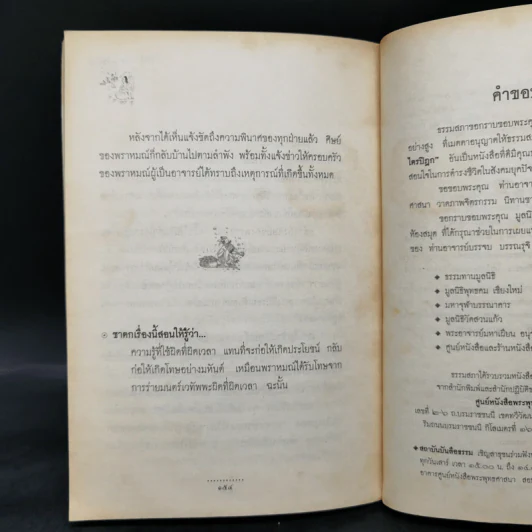 หลังจากได้เห็นแจ้งชัดถึงความพินาศของทุกฝ่ายแล้ว ศิษย์
ของพราหมณ์ก็กลับบ้านไปตามลำพัง พร้อมทั้งแจ้งข่าวให้ครอบครัว
ของพราหมณ์ผู้เป็นอาจารย์ได้ทราบถึงเหตุการณ์ที่เกิดขึ้นทั้งหมด
ชาดกเรื่องนี้สอนให้รู้ว่า...
ความรู้ที่ใช้ผิดที่ผิดเวลา แทนที่จะก่อให้เกิดประโยชน์ กลับ
ก่อให้เกิดโทษอย่างมหันต์ เหมือนพราหมณ์ได้รับโทษจาก
การร่ายมนตร์เวทัพพะผิดที่ผิดเวลา ฉะนั้น
๑๕๔
คำขอ
ธรรมสภาขอกราบขอบพระคุ
อย่างสูง ที่เมตตาอนุญาตให้ธรรมส
ไตรปิฎก" อันเป็นหนังสือที่ดีมีคุณ
สอนใจในการดำรงชีวิตในสังคมยุคปัจ
ขอขอบพระคุณ ท่านอาจาร
ศาสนา วาดภาพจิตรกรรม นิทานชา
ขอกราบขอบพระคุณ มูลนิ
ห้องสมุด ที่ได้กรุณาช่วยในการเผยแ
ของ ท่านอาจารย์บรรจบ บรรณรุจิ
◆ ธรรมทานมูลนิธิ
◆ มูลนิธิพุทธคม เชียงใหม่
◆ มหาจุฬาบรรณาคาร
◆ มูลนิธิวัดสวนแก้ว
◆ พระอาจารย์มหาเปี่ยน อนุ
◆ ศูนย์หนังสือและร้านหนังสื
ธรรมสภาได้รวบรวมหนังสือ
จากสำนักพิมพ์และสำนักปฏิบัติธ
ศูนย์หนังสือพระพุท
เลขที่ ๒-๖ ถ.บรมราชชนนี เขตทวีวัฒน
ริมถนนบรมราชชนนี กิโลเมตรที่
◆ สถาบันบันลือธรรม เชิญสาธุชนร่วมฟังบ
ทุกวันเสาร์ เวลา ๑๓.๐๐ น. ถึง ๑๕.๐
อาคารศูนย์หนังสือพระพุทธศาสนา